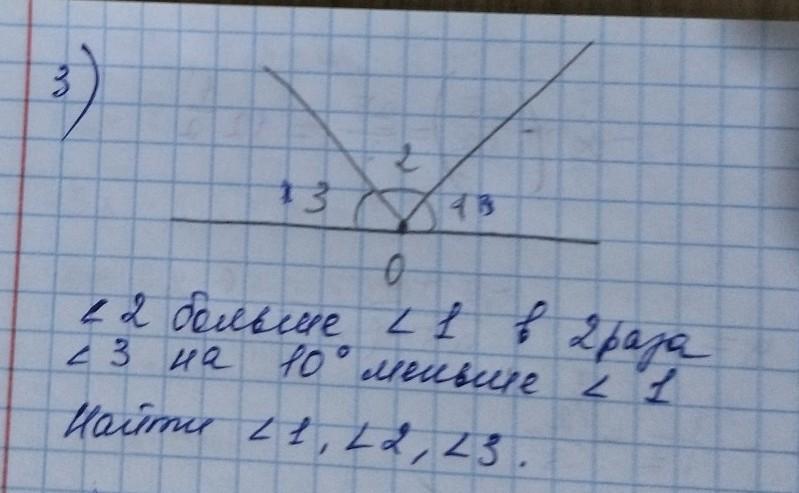 3)
2
3 1
O
∠2 больше ∠1 в 2 раза
∠3 на 10° меньше ∠1
Найти ∠1, ∠2, ∠3.